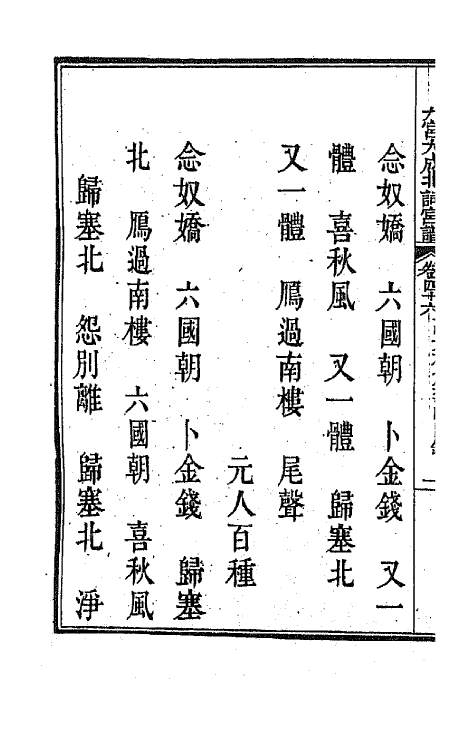 念奴嬌　六國朝　卜金錢　又一
體　喜秋風　又一體　歸塞北
又一體　鴈過南樓　尾聲
元人百種
念奴嬌　六國朝　卜金錢　歸塞
北　鴈過南樓　六國朝　喜秋風
歸塞北　怨別離　歸塞北　淨